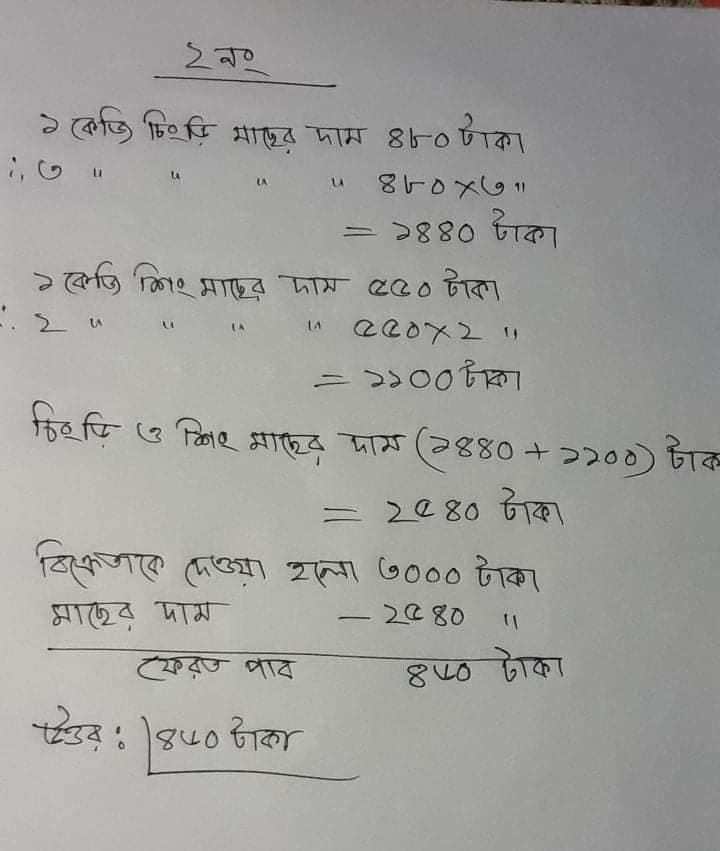 ২ নং
১ কেজি চিংড়ি মাছের দাম ৪৮০ টাকা
∴ ৩ " " " " ৪৮০×৩ "
= ১৪৪০ টাকা
১ কেজি শিং মাছের দাম ৫৫০ টাকা
∴ ২ " " " " ৫৫০×২ "
= ১১০০ টাকা
চিংড়ি ও শিং মাছের দাম (১৪৪০ + ১১০০) টাক
= ২৫৪০ টাকা
বিক্রেতাকে দেওয়া হলো ৩০০০ টাকা
মাছের দাম — ২৫৪০ "
ফেরত পাব ৪৬০ টাকা
উত্তর : ৪৬০ টাকা